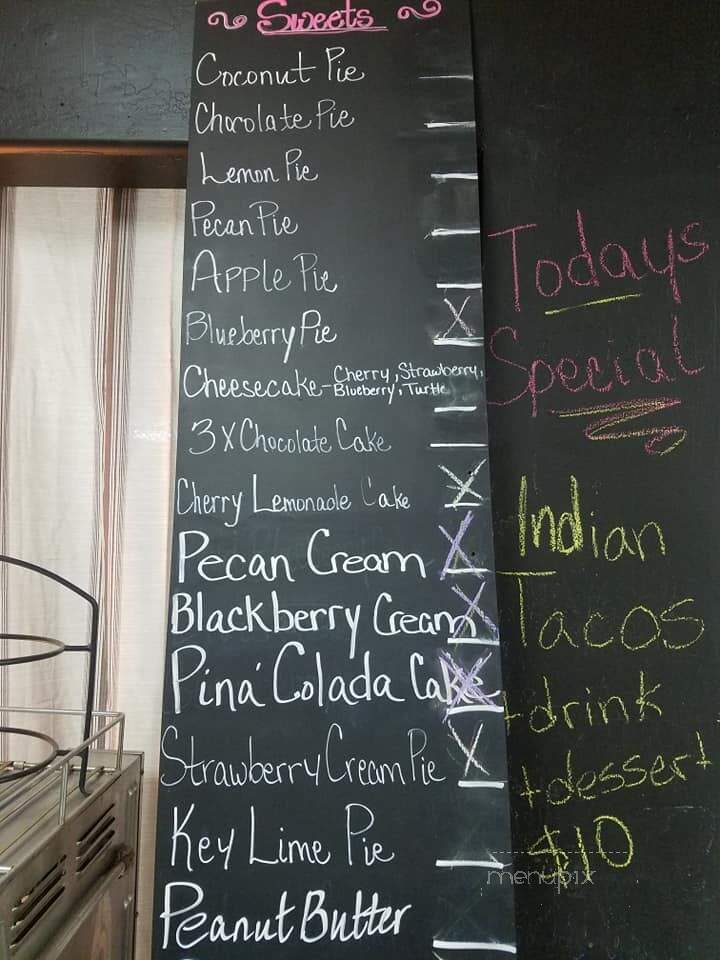 Sweets
Coconut Pie
Chocolate Pie
Lemon Pie
Pecan Pie
Apple Pie
Blueberry Pie X
Cheesecake - Cherry, Strawberry,
Blueberry, Turtle
3 X Chocolate Cake
Cherry Lemonade Cake X
Pecan Cream X
Blackberry Cream X
Pina' Colada Cake X
Strawberry Cream Pie X
Key Lime Pie
Peanut Butter
Todays
Special
Indian
Tacos
+drink
+dessert
$10
menupix